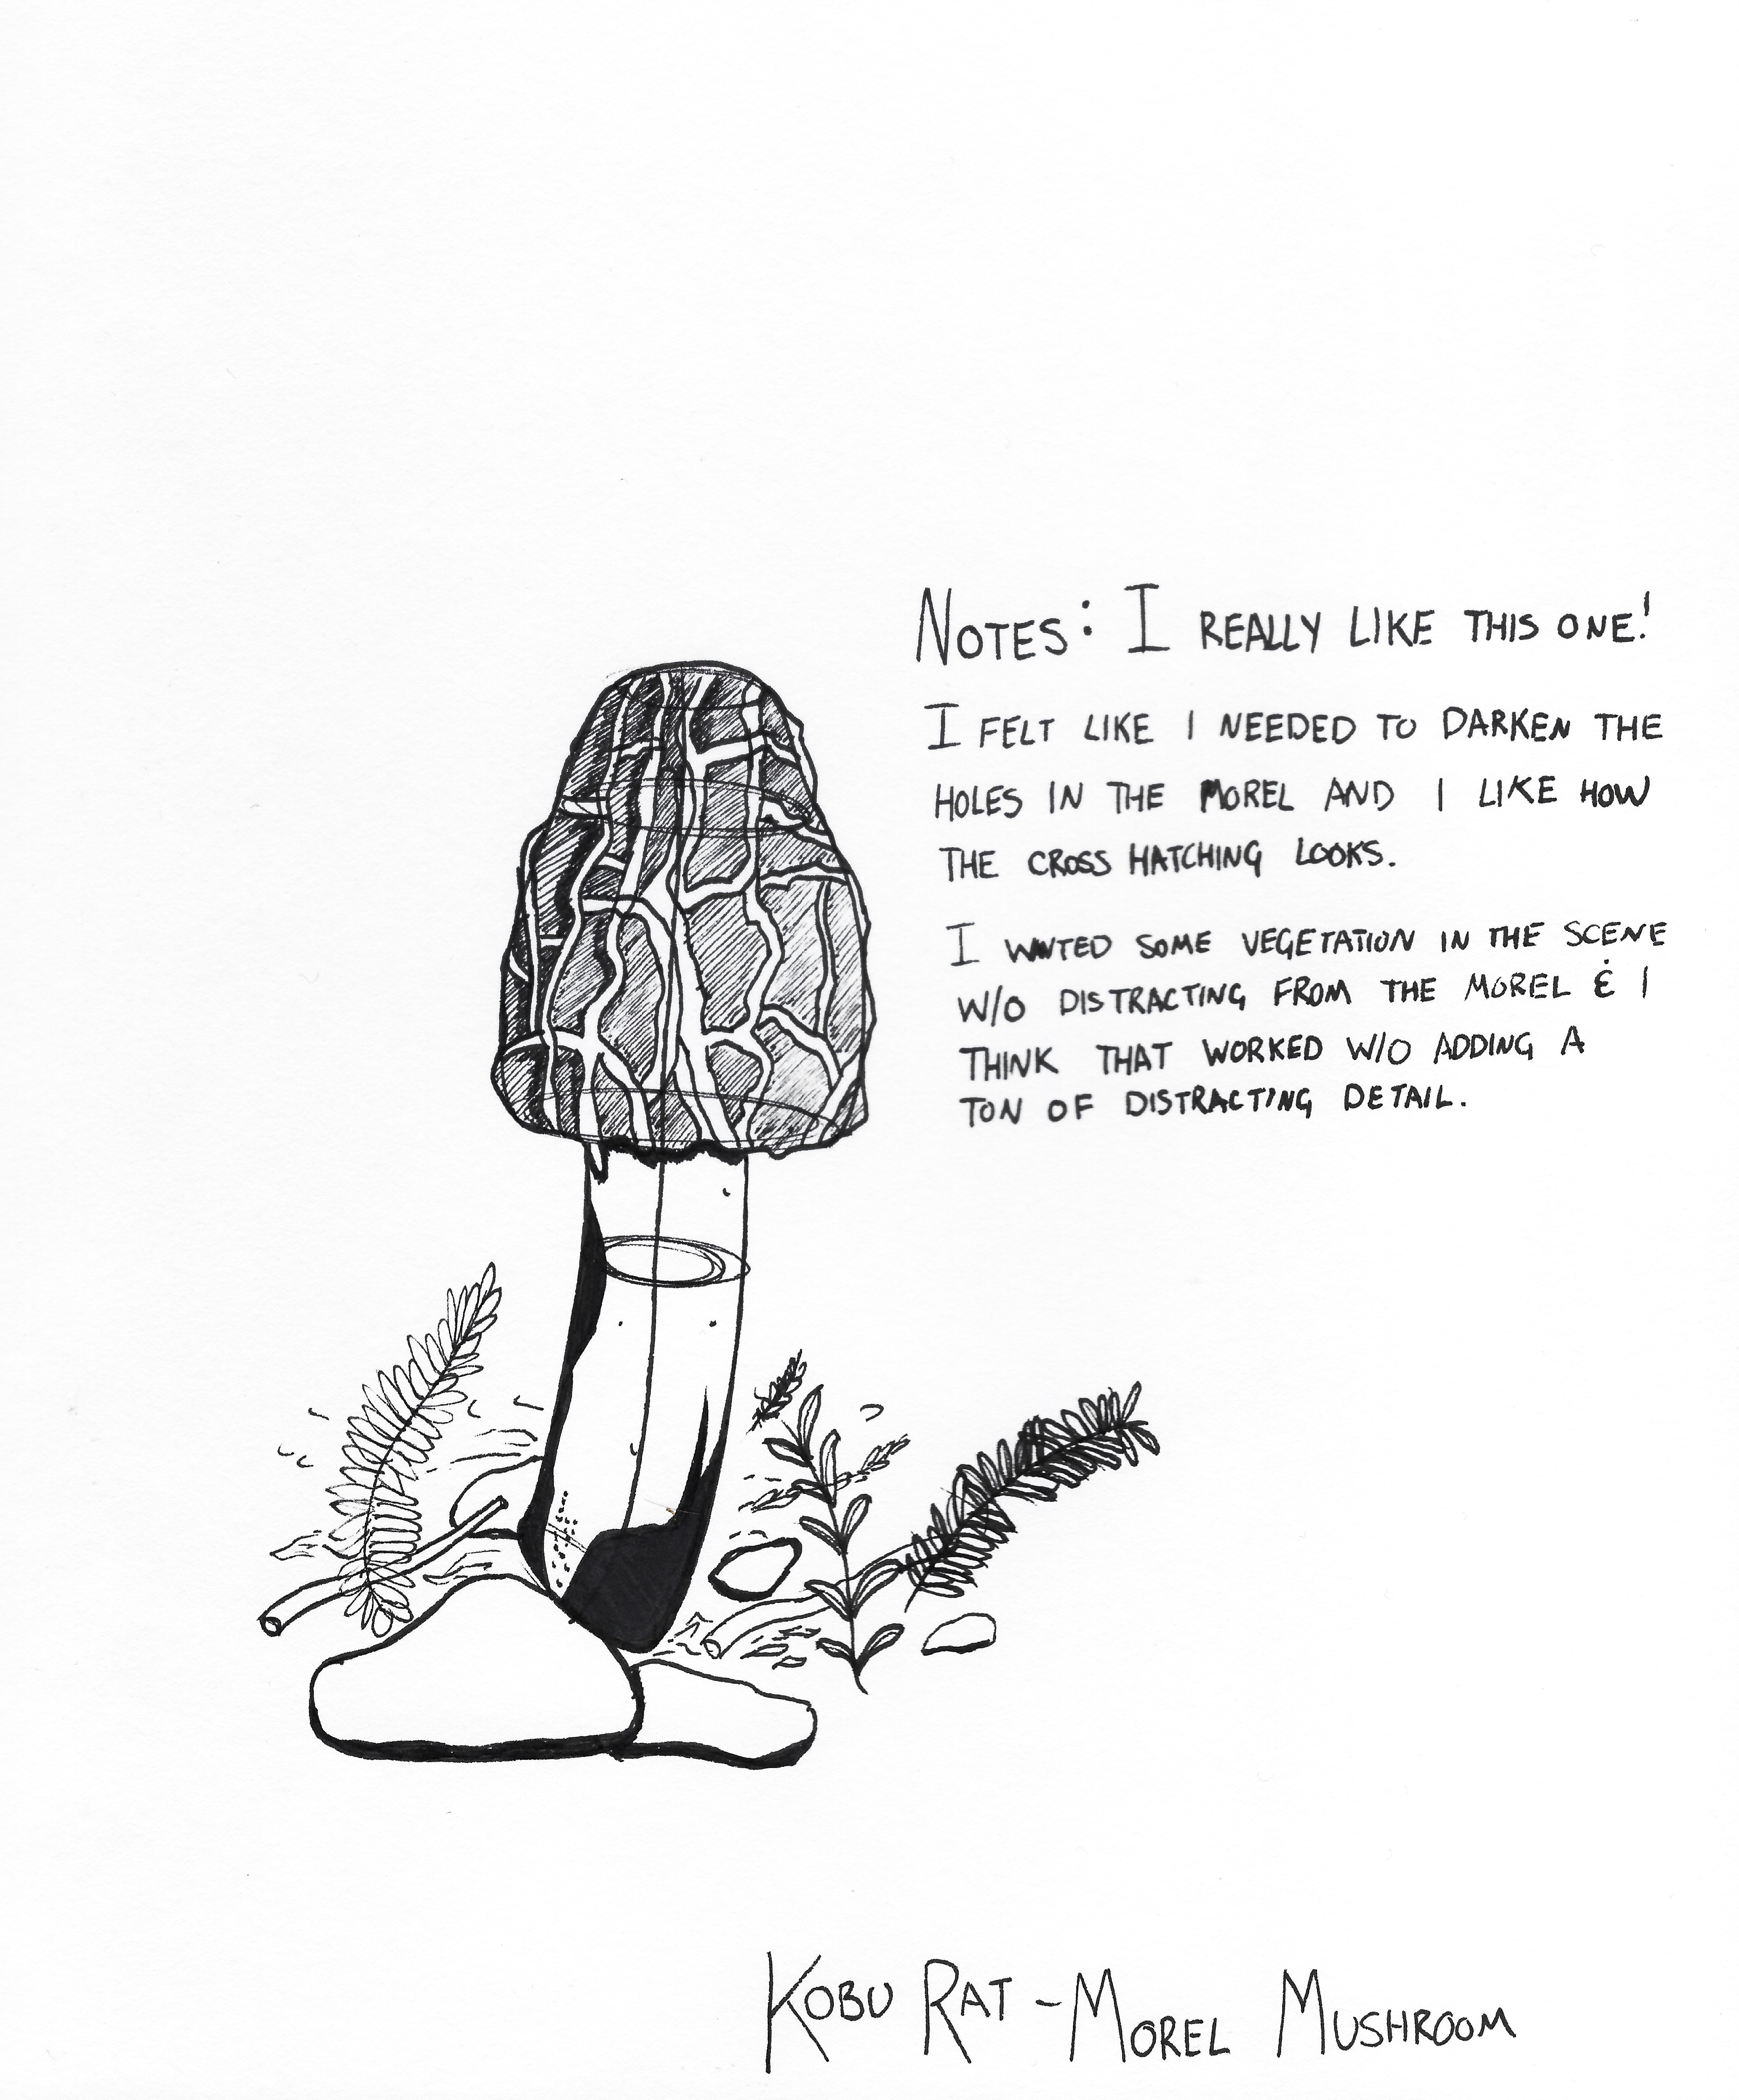 NOTES: I REALLY LIKE THIS ONE!
I FELT LIKE I NEEDED TO DARKEN THE
HOLES IN THE MOREL AND I LIKE HOW
THE CROSS HATCHING LOOKS.
I WANTED SOME VEGETATION IN THE SCENE
W/O DISTRACTING FROM THE MOREL & I
THINK THAT WORKED W/O ADDING A
TON OF DISTRACTING DETAIL.
KOBU RAT - MOREL MUSHROOM